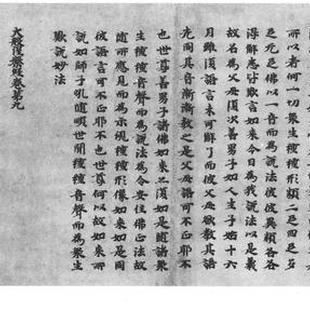 所以者何一切眾生種種形類二足四足多
足无足佛以一音而為說法彼彼異類各各
得解悉共歎言如來今日為我說法以是義
故名為父母復次善男子如人生子始十六
月雖復語言未可解了而彼父母欲教其語
先同其音漸漸教之是父母語可不正耶不
也世尊善男子諸佛如來亦復如是隨諸眾
生種種音聲而為說法為令安住佛正法故
隨所應見而為示現種種形像如來如是同
彼語言可不正耶不也世尊何以故如來所
說如師子吼隨順世間種種音聲而為眾生
歎說妙法
大般涅槃經卷第九